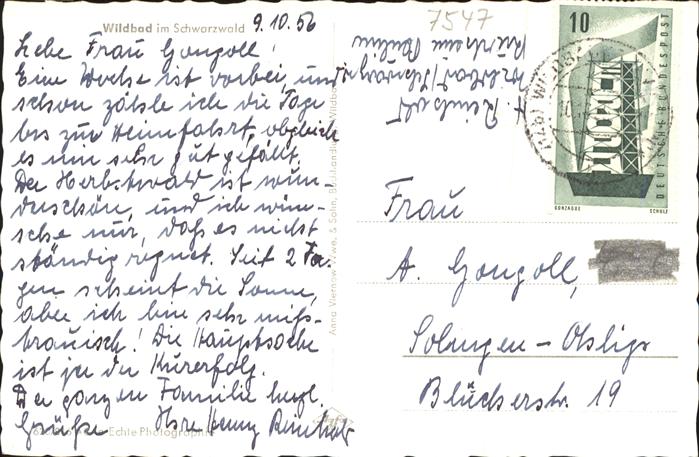 Wildbad im Schwarzwald 9.10.56
Liebe Frau Gongoll!
Eine Woche ist vorbei, und
schon zähle ich die Tage
bis zur Heimfahrt, obgleich
es mir sehr gut gefällt.
Der Herbstwald ist wun-
derschön, und ich wün-
sche nur, daß es nicht
ständig regnet. Seit 2 Ta-
gen scheint die Sonne,
aber ich bin sehr miß-
trauisch! Die Hauptsache
ist ja der Kurerfolg.
Der ganzen Familie herzl.
Grüße Ihre Henny Reinholt
Echte Photographie
Anna Viernow Wwe. & Sohn, Buchhandlung, Wildbad
7547
Wildbad/Schwarzw.
10
DEUTSCHE BUNDESPOST
GONZAGUE SCHULZ
Frau
A. Gongoll,
Solingen-Ohligs
Blücherstr. 19